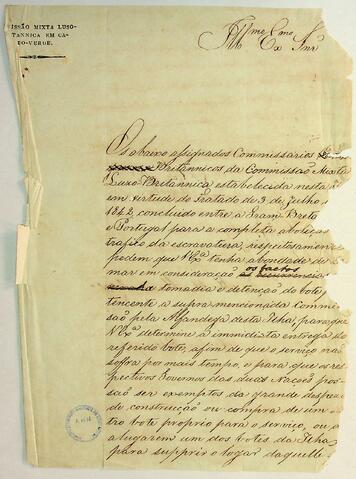 ISSÃO MIXTA LUSO-
TANNICA EM CA-
BO-VERDE.
Illmo Exmo Snr
Os abaixo assignados Commissarios
Britannicos da Commissão Mixta
Luso-Britannica estabelecida nesta
em virtude do Tratado de 3 de Julho
1842, concluido entre a Gram Breta
e Portugal para a completa aboliçã
trafico da escravatura, respeitosamen
pedem que VExª tenha a bondade de
mar em consideração os factos
tomadia e detenção do bote
tencente a supra mencionada Commi
são pela Alfandega desta Ilha, para que
VExª determine a immidiata entrega do
referido bote, afim de que o serviço não
soffra por mais tempo, e para que os re
spectivos Governos das duas Nações pos
são ser exemptos da grande despez
de construcção ou compra de um ou
tro bote proprio para o serviço, ou d
alugarem um dos botes da Ilha
para supprir o logar daquelle